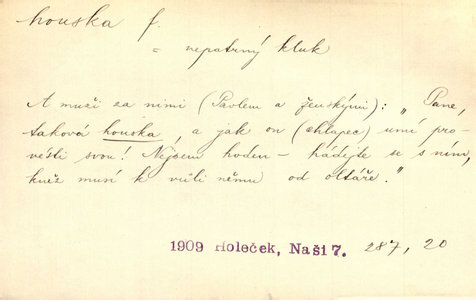 houska f.
= nepatrný kluk
A muži za nimi (Pavlem a ženskými): „Pane,
taková houska, a jak on (chlapec) umí pro-
vésti svou! Nejsem hoden – hádejte se s ním,
kněz musí k vůli němu od oltáře."
1909 Holeček, Naši 7. 287, 20